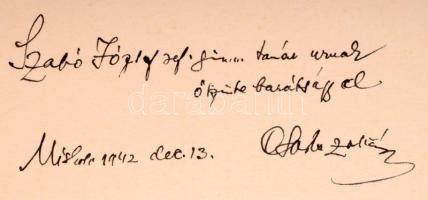 Szabó József ref. gimn. tanár urnak
őszinte barátsággal
Miskolc 1942 dec. 13.